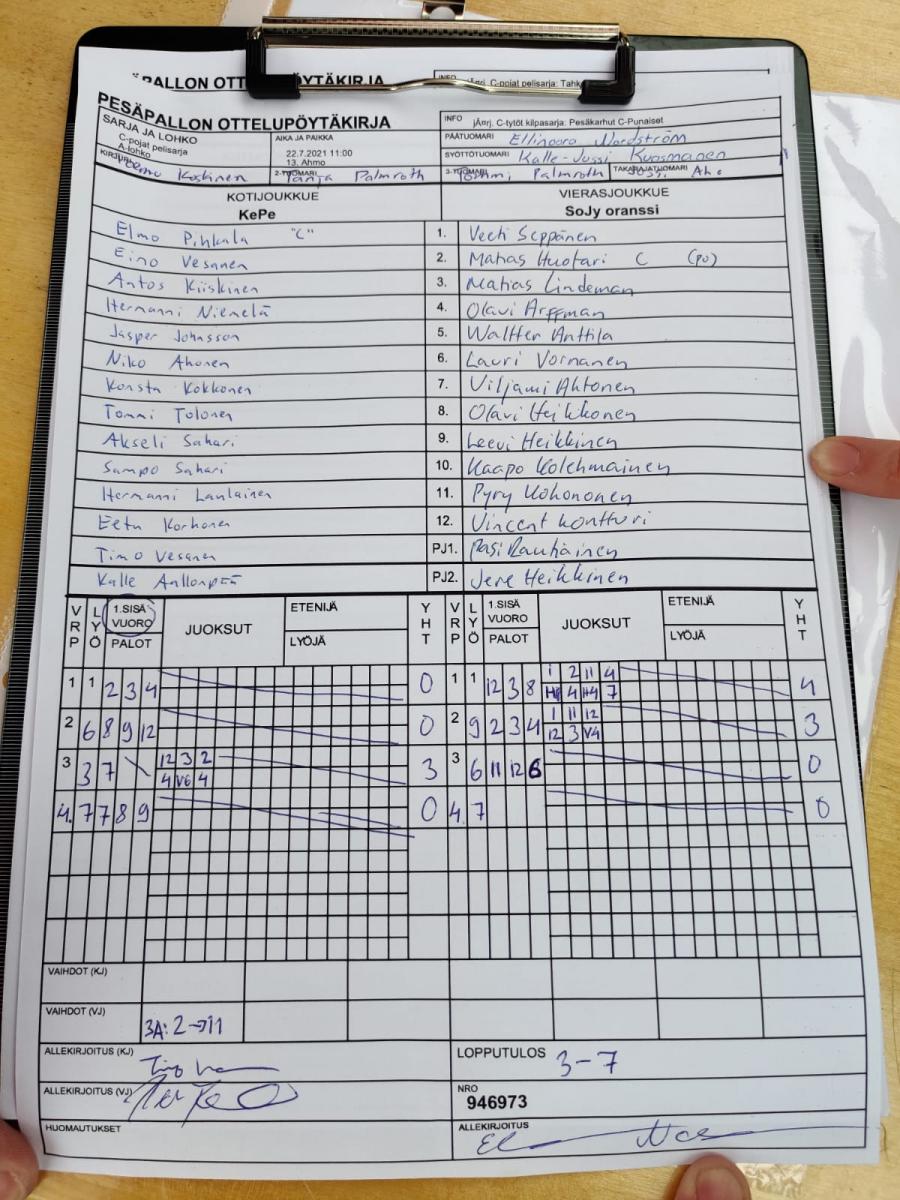 PÄPALLON OTTELUPÖYTÄKIRJA
INFO jÄnrj. C-pojat pelisarja: Tahk
PESÄPALLON OTTELUPÖYTÄKIRJA
INFO jÄnrj. C-tytöt kilpasarja: Pesäkarhut C-Punaiset
SARJA JA LOHKO
C-pojat pelisarja
A-lohko
AIKA JA PAIKKA
22.7.2021 11:00
13. Ahmo
PÄÄTUOMARI Ellinoora Nordström
SYÖTTÖTUOMARI Kalle-Jussi Kuosmanen
KIRJURI Koskinen
2-TUOMARI Tanja Palmroth
3-TUOMARI Tommi Palmroth
TAKARAJATUOMARI Aho
KOTIJOUKKUE
KePe
VIERASJOUKKUE
SoJy oranssi
Elmo Pihkala "C" 1. Veeti Seppänen
Eino Vesanen 2. Matias Huotari C (PU)
Antos Kiiskinen 3. Matias Lindeman
Hermanni Niemelä 4. Olavi Arffman
Jasper Johnsson 5. Waltter Anttila
Niko Ahonen 6. Lauri Vornanen
Konsta Kokkonen 7. Viljami Ahtonen
Tommi Tolonen 8. Olavi Heikkonen
Akseli Sahari 9. Leevi Heikkinen
Sampo Sahari 10. Kaapo Kolehmainen
Hermanni Laulainen 11. Pyry Kohononen
Eetu Korhonen 12. Vincent Konttori
Timo Vesanen PJ1. Pasi Rautiainen
Kalle Aallonpää PJ2. Jere Heikkinen
VRP LYÖ 1.SISÄ VUORO PALOT JUOKSUT ETENIJÄ LYÖJÄ YHT VRP LYÖ 1.SISÄ VUORO PALOT JUOKSUT ETENIJÄ LYÖJÄ YHT
1 1 2 3 4 0 1 1 12 3 8 1 2 11 4 4
4 H4 7
2 6 8 9 12 0 2 9 2 3 4 1 11 12 3
12 3 V4
3 3 7 12 3 2 3 3 6 11 12 6 0
4 V6 4
4. 7 7 8 9 0 4. 7 0
VAIHDOT (KJ)
VAIHDOT (VJ) 3A: 2→11
ALLEKIRJOITUS (KJ)
LOPPUTULOS 3-7
ALLEKIRJOITUS (VJ)
NRO
946973
HUOMAUTUKSET
ALLEKIRJOITUS